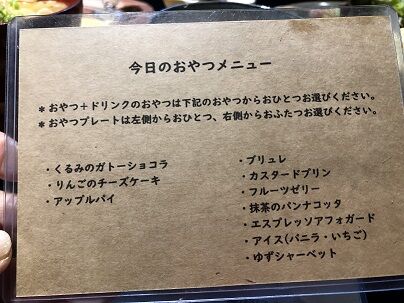 今日のおやつメニュー
＊おやつ＋ドリンクのおやつは下記のおやつからおひとつお選びください。
＊おやつプレートは左側からおひとつ、右側からおふたつお選びください。
・くるみのガトーショコラ
・りんごのチーズケーキ
・アップルパイ
・ブリュレ
・カスタードプリン
・フルーツゼリー
・抹茶のパンナコッタ
・エスプレッソアフォガード
・アイス(バニラ・いちご)
・ゆずシャーベット